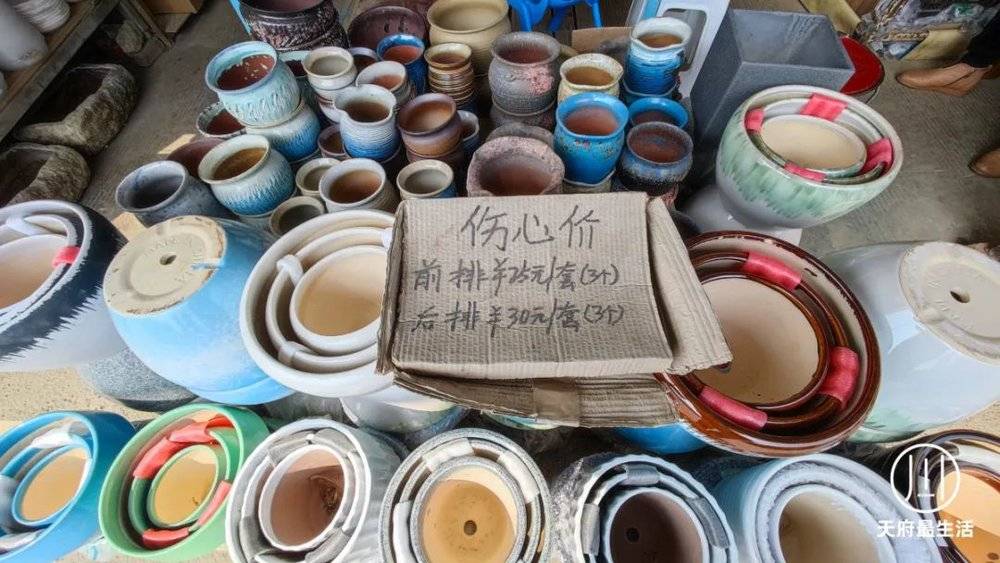 伤心价
前排￥25元/套(3个)
后排￥30元/套(3个)
天府最生活